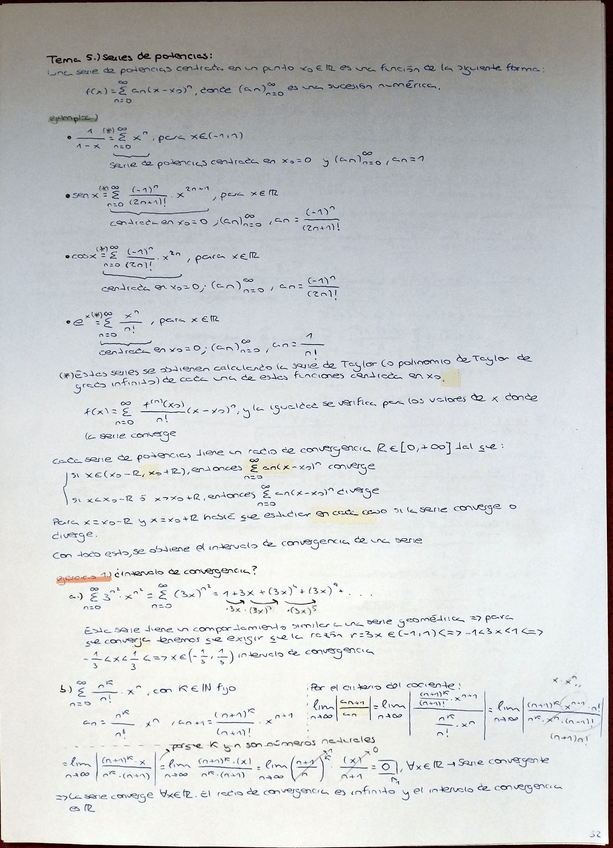 Tema 5.) Series de potencias:
Una serie de potencias centrada en un punto x₀∈ℝ es una función de la siguiente forma:
f(x) = ∑_{n=0}^{∞} an(x-x₀)ⁿ, donde (an)_{n=0}^{∞} es una sucesión numérica.
ejemplos)
• 1/(1-x) (*)= ∑_{n=0}^{∞} xⁿ, para x∈(-1,1)
serie de potencias centrada en x₀=0 y (an)_{n=0}^{∞}, an=1
• sen x (*)= ∑_{n=0}^{∞} (-1)ⁿ/(2n+1)! · x^{2n+1}, para x∈ℝ
centrada en x₀=0, (an)_{n=0}^{∞}, an = (-1)ⁿ/(2n+1)!
• cos x (*)= ∑_{n=0}^{∞} (-1)ⁿ/(2n)! · x^{2n}, para x∈ℝ
centrada en x₀=0; (an)_{n=0}^{∞}, an = (-1)ⁿ/(2n)!
• eˣ (*)= ∑_{n=0}^{∞} xⁿ/n!, para x∈ℝ
centrada en x₀=0; (an)_{n=0}^{∞}, an = 1/n!
(*) Estas series se obtienen calculando la serie de Taylor (o polinomio de Taylor de
grado infinito) de cada una de estas funciones centrada en x₀.
f(x) = ∑_{n=0}^{∞} f⁽ⁿ⁾(x₀)/n! (x-x₀)ⁿ, y la igualdad se verifica para los valores de x donde
la serie converge
Cada serie de potencias tiene un radio de convergencia R∈[0,+∞] tal que:
si x∈(x₀-R, x₀+R), entonces ∑_{n=0}^{∞} an(x-x₀)ⁿ converge
si x<x₀-R ó x>x₀+R, entonces ∑_{n=0}^{∞} an(x-x₀)ⁿ diverge
Para x=x₀-R y x=x₀+R habrá que estudiar en cada caso si la serie converge o
diverge.
Con todo esto, se obtiene el intervalo de convergencia de una serie
ejercicio 1) ¿Intervalo de convergencia?
a.) ∑_{n=0}^{∞} 3^{n²} · x^{n²} = ∑_{n=0}^{∞} (3x)^{n²} = 1+3x+(3x)⁴+(3x)⁹+ . . .
·3x ·(3x)³ ·(3x)⁵
Esta serie tiene un comportamiento similar a una serie geométrica => para
que converja tenemos que exigir que la razón r=3x∈(-1,1)<=> -1<3x<1<=>
-1/3<x<1/3 <=> x∈(-1/3, 1/3) intervalo de convergencia
b.) ∑_{n=0}^{∞} nᴷ/n! · xⁿ, con K∈ℕ fijo
an = nᴷ/n! xⁿ, an+1 = (n+1)ᴷ/(n+1)! · x^{n+1}
Por el criterio del cociente:
lim_{n→∞} |an+1/an| = lim_{n→∞} |((n+1)ᴷ/(n+1)! · x^{n+1})/(nᴷ/n! · xⁿ)| = lim_{n→∞} |((n+1)ᴷ · x^{n+1} · n!)/(nᴷ · xⁿ · (n+1)!)|
x · xⁿ
(n+1)n!
porque K y n son números naturales
= lim_{n→∞} |((n+1)ᴷ · x)/(nᴷ · (n+1))| = lim_{n→∞} ((n+1)ᴷ · |x|)/(nᴷ · (n+1)) = lim_{n→∞} ((n+1)/n)ᴷ · |x|/(n+1) = 0, ∀x∈ℝ → Serie convergente
=> La serie converge ∀x∈ℝ. El radio de convergencia es infinito y el intervalo de convergencia
es ℝ
32